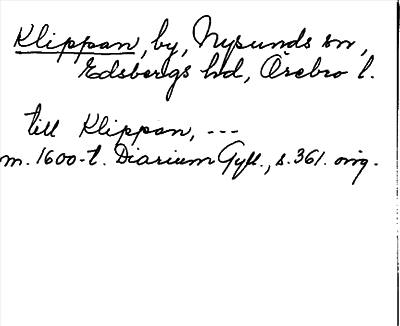 Klippan, by, Nysunds sn,
Edsbergs hd, Örebro l.
till Klippan, ---
m. 1600-t. Diarium Gyll., s. 361. orig.